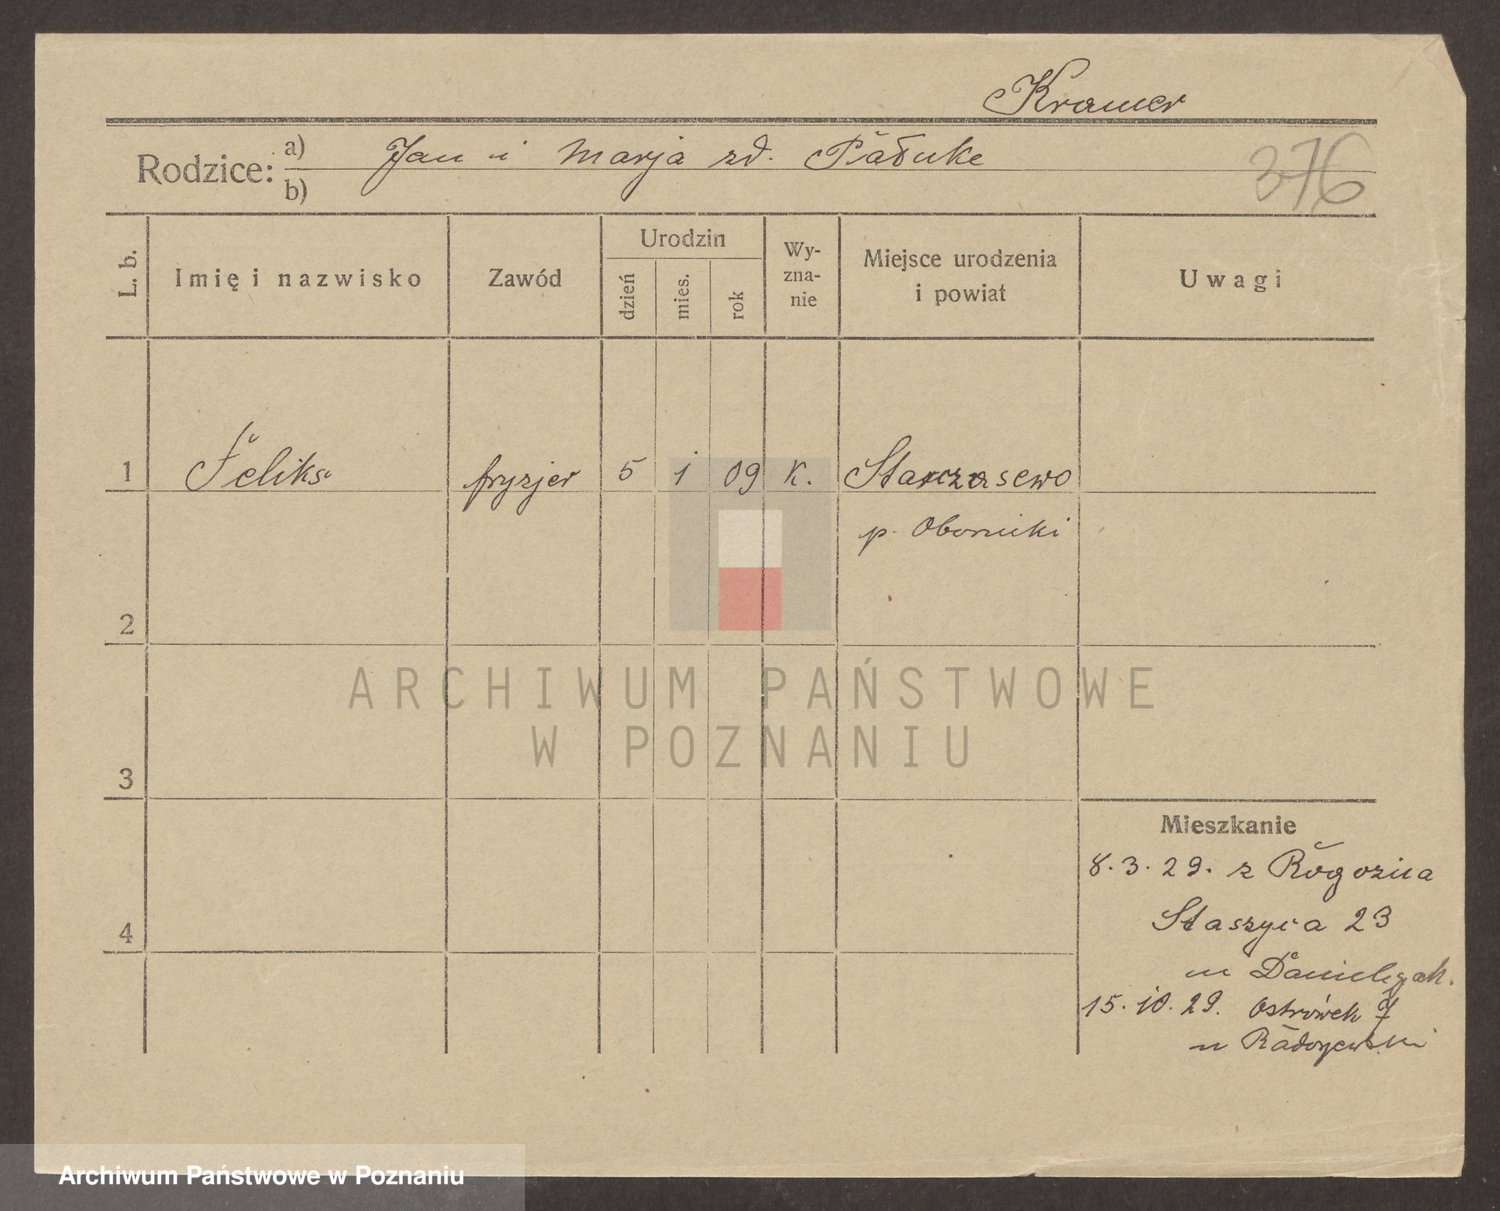 Kramer
Rodzice: a) Jan i Marja zd. Pałuke
b)
376
L. b.
Imię i nazwisko
Zawód
Urodzin
dzień
mies.
rok
Wy-
zna-
nie
Miejsce urodzenia
i powiat
Uwagi
1 Feliks fryzjer 5 1 09 K.
p. Oborniki
2
ARCHIWUM PAŃSTWOWE
W POZNANIU
3
Mieszkanie
8.3.29. z Rogoźna
4
Staszyca 23
u
15.10.29. Ostrówek 7
u
Archiwum Państwowe w Poznaniu